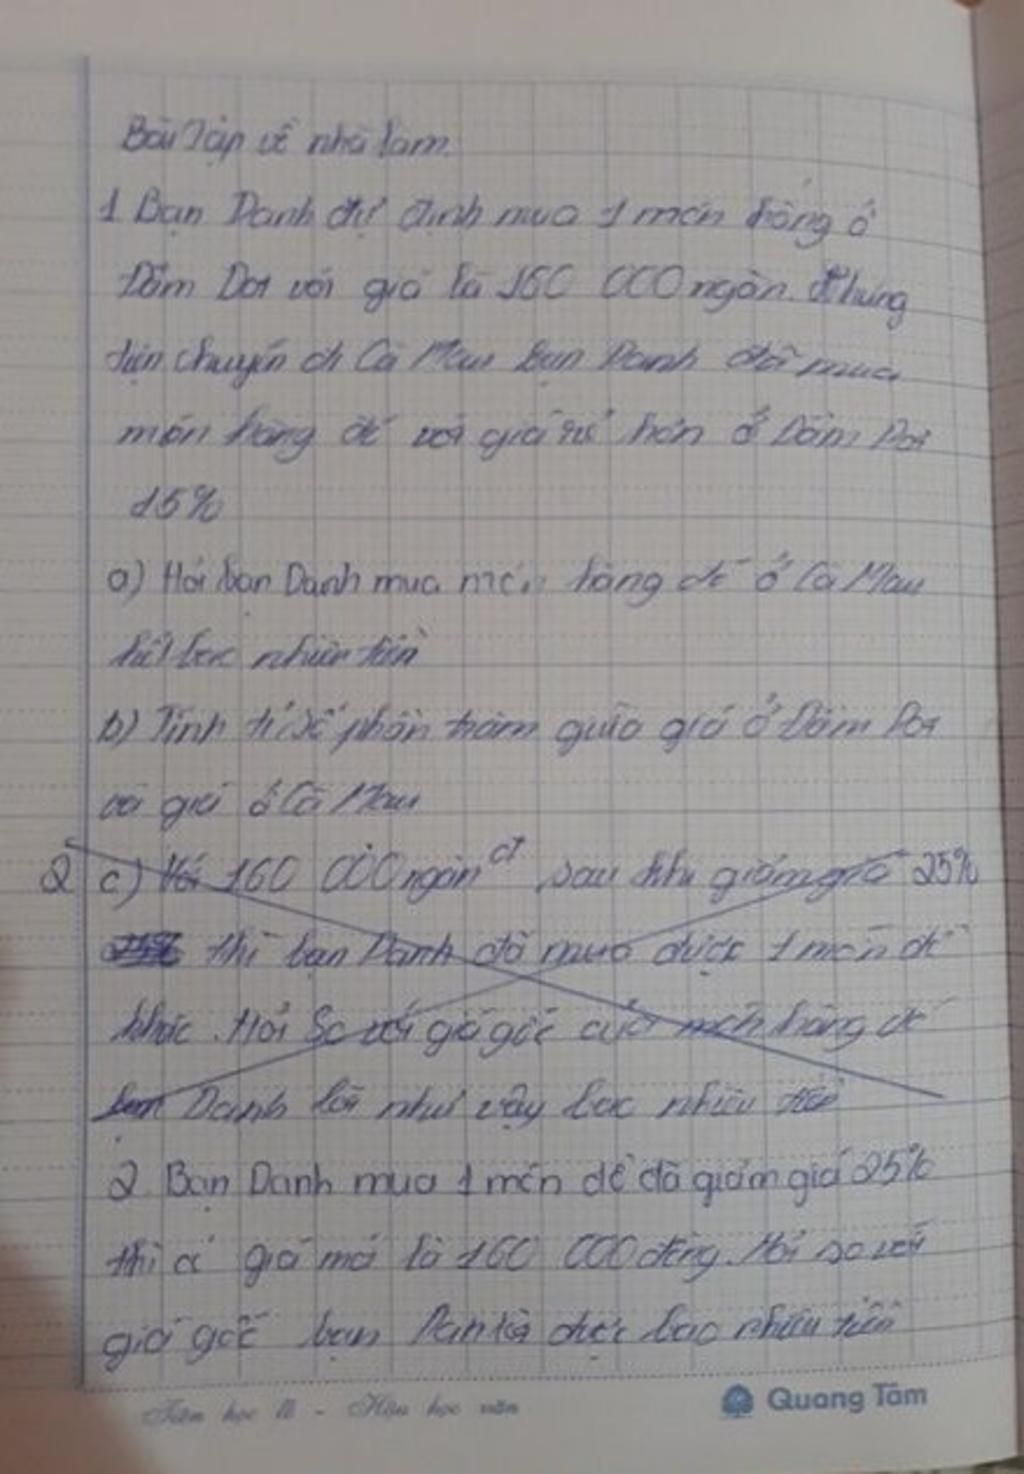 Bài tập về nhà làm.
1 Bạn Danh dự định mua 1 món hàng ở
Đầm Dơi với giá là 160 000 ngàn. Nhưng
tiện chuyến đi Cà Mau bạn Danh đã mua
món hàng đó với giá rẻ hơn ở Đầm Dơi
15%
a) Hỏi bạn Danh mua món hàng đó ở Cà Mau
hết bao nhiêu tiền
b) Tính tỉ số phần trăm giữa giá ở Đầm Dơi
và giá ở Cà Mau
2 c) Với 160 000 ngàn đ sau khi giảm giá 25%
thì bạn Danh đã mua được 1 món đồ
khác. Hỏi so với giá gốc của món hàng đó
bạn Danh lời như vậy bao nhiêu tiền
2 Bạn Danh mua 1 món đồ đã giảm giá 25%
thì có giá mới là 160 000 đồng. Hỏi so với
giá gốc bạn Danh lời được bao nhiêu tiền
Tiên học lễ - Hậu học văn
Quang Tâm